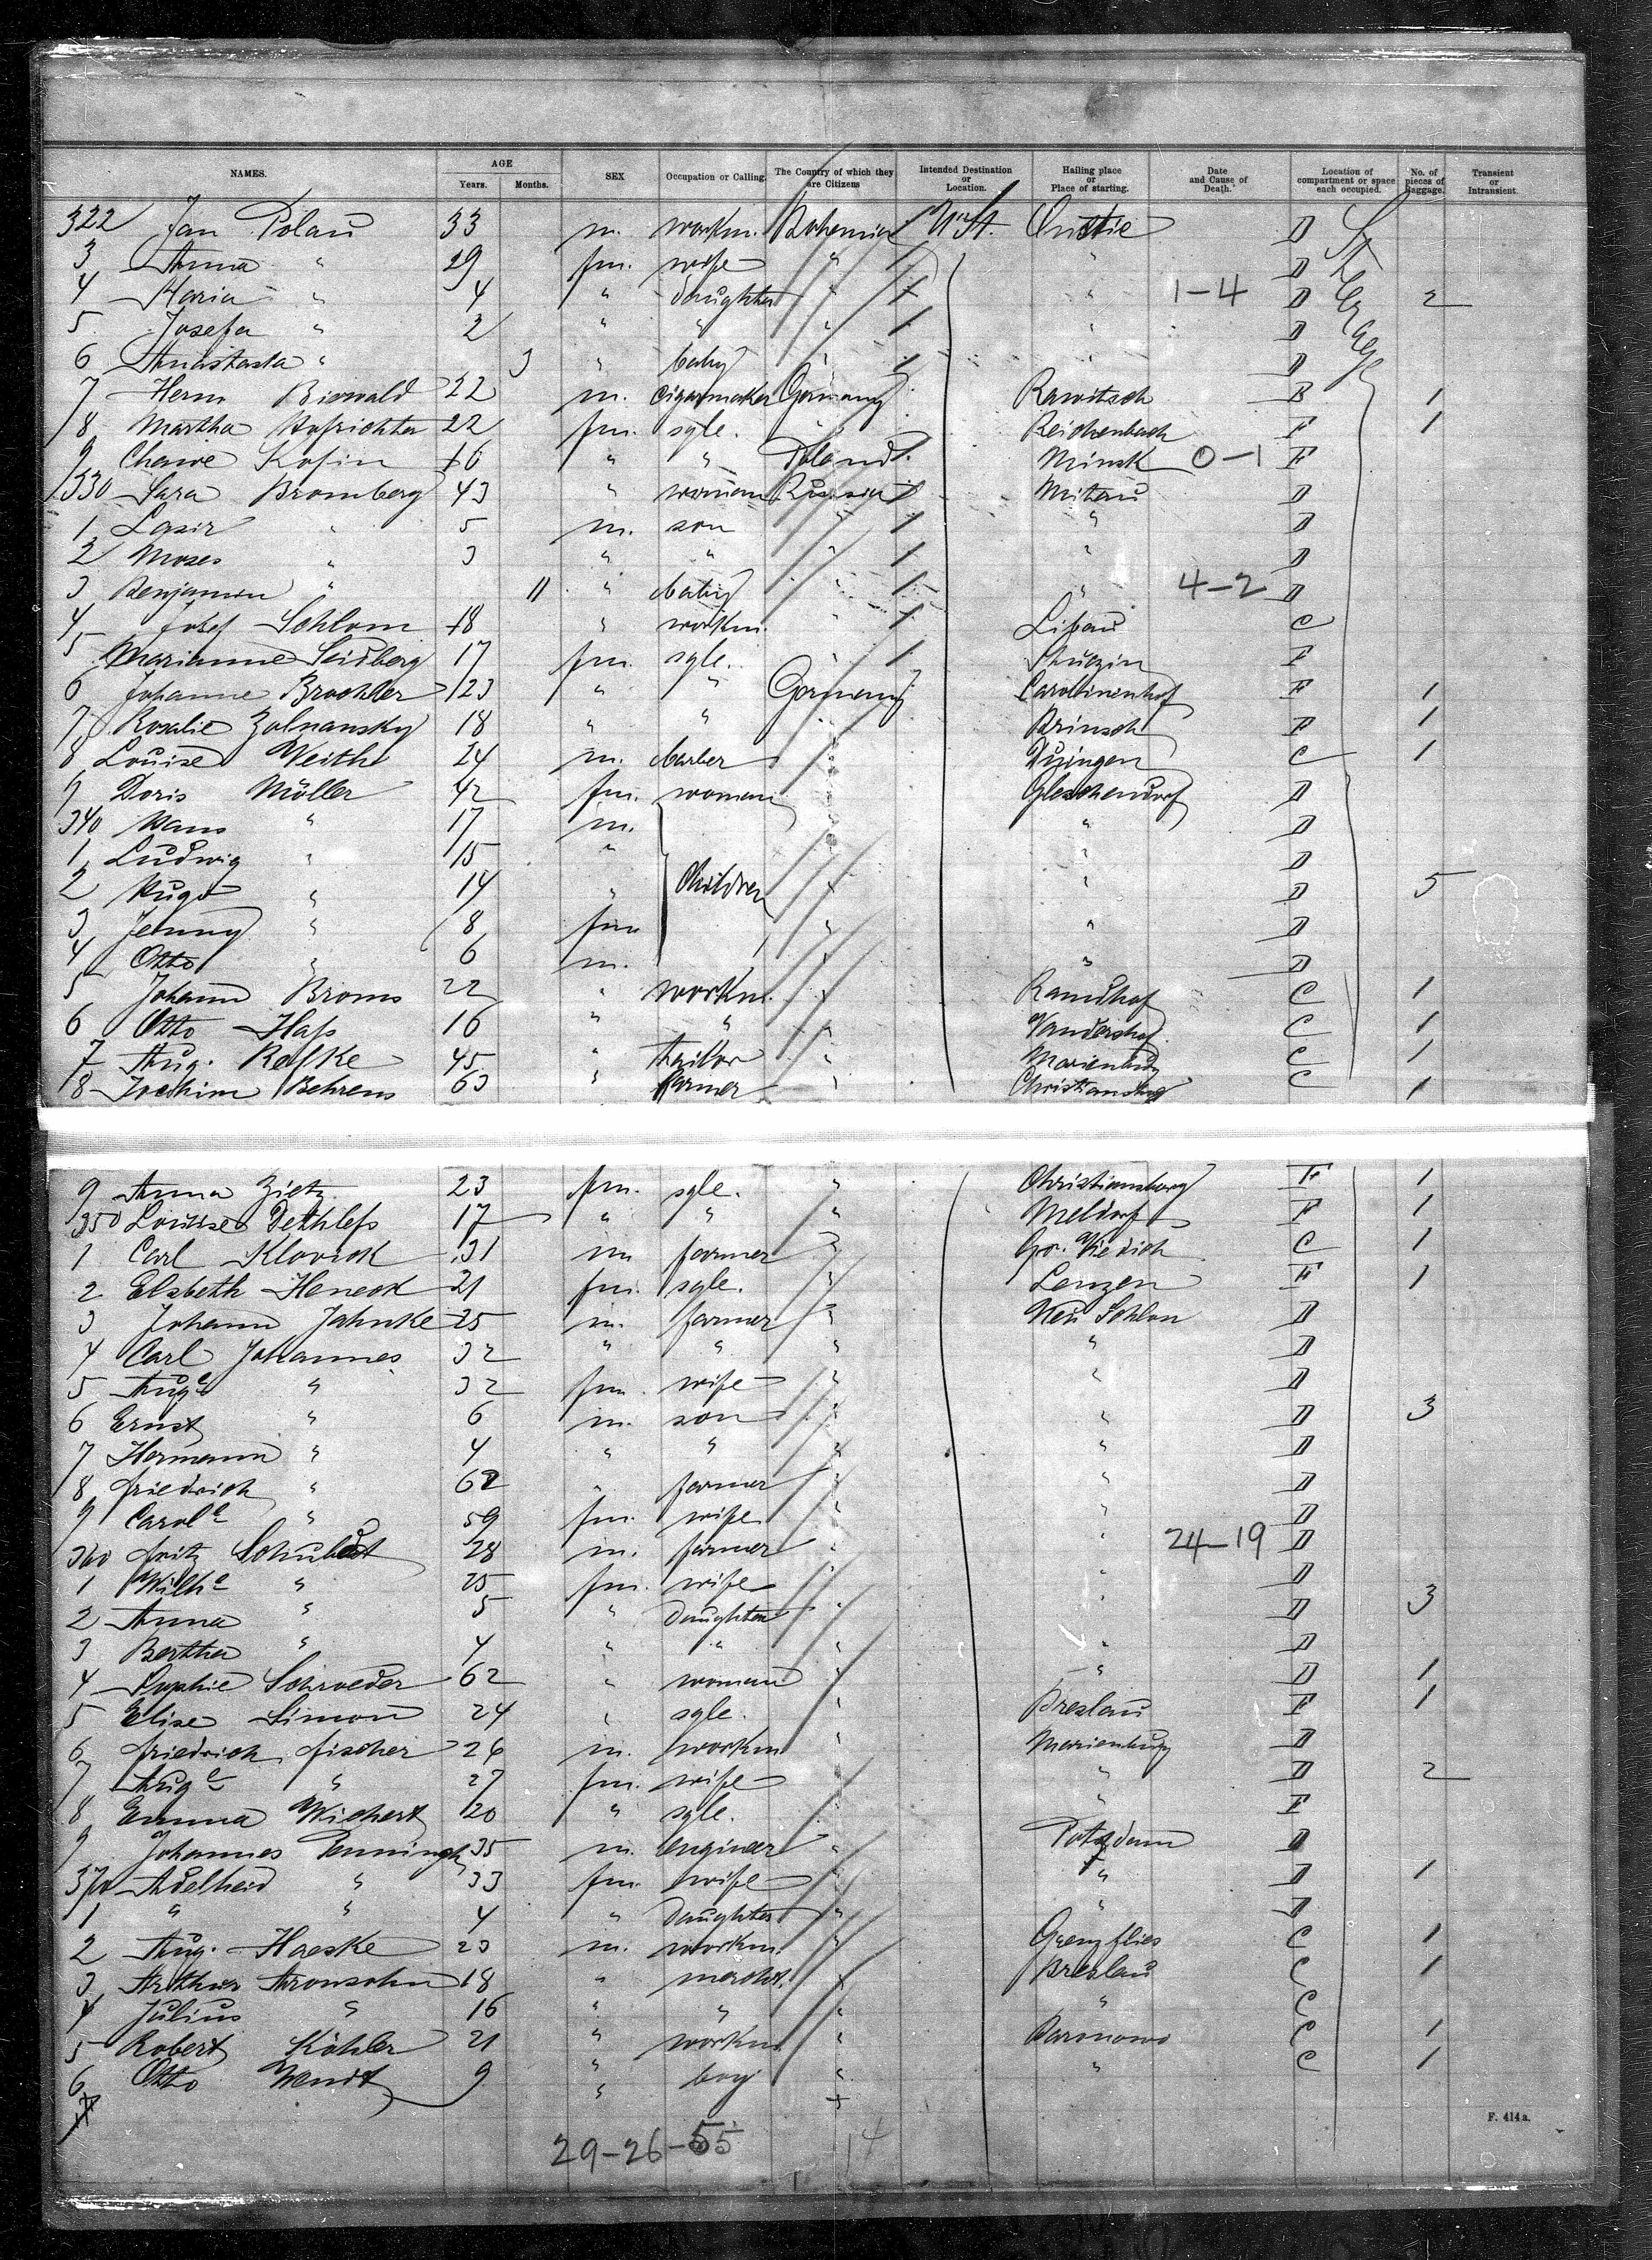 NAMES. AGE Years. Months. SEX Occupation or Calling. The Country of which they are Citizens Intended Destination or Location. Hailing place or Place of starting. Date and Cause of Death. Location of compartment or space each occupied. No. of pieces of Baggage. Transient or Intransient.
322 Jan Polau 33 m. workm. Bohemia U. St. D Steerage
3 Anna " 29 fm. wife " " D
4 Maria " 4 " daughter " " 1-4 D 2
5 Josefa " 2 " " " " D
6 Anastasia " 3 " baby " " D
7 Herm Bierwald 22 m. cigarmaker Germany Rawitsch B 1
8 Martha Hofrichter 22 fm. sgle. " Reichenbach F 1
9 Chawe Kofin 16 " " Poland Minsk 0-1 F
330 Sara Bromberg 43 " woman Russia Mitau D
1 Lasir " 5 m. son " " D
2 Moses " 3 " " " " D
3 Benjamin " 11 " baby " " 4-2 D
4 Josef Schlom 18 " workm. " Libau C
5 Marianne Seidberg 17 fm. sgle. " Stuczin F
6 Johanne Brochler 23 " " Germany Carolinenhof F 1
7 Rosalie Zolnansky 18 " " " Brinsch F 1
8 Louise Weith 24 m. barber " Duingen C 1
9 Doris Möller 42 fm. woman " Gleschendorf D
340 Hans " 17 m. " " D
1 Ludwig " 15 " " " D
2 Hugo " 14 " Children " " D 5
3 Jenny " 8 fm " " D
4 Otto " 6 m. " " D
5 Johann Broms 22 " workm. " Ramdhof C 1
6 Otto Hass 16 " " " Vandershof C 1
7 Aug. Refke 45 " tailor " Marienburg C 1
8 Joachim Behrens 63 " farmer " Christiansburg C 1
9 Anna Zietz 23 fm. sgle. " Christiansburg F 1
350 Louise Dethlefs 17 " " " Meldorf F 1
1 Carl Klovick 31 m farmer " Gr. C 1
2 Elsbeth Heneck 21 fm. sgle. " Lenzen F 1
3 Johann Jahnke 25 m. farmer " Neu Schlon D
4 Carl Johannes 32 " " " " D
5 Auge " 32 fm. wife " " D
6 Ernst " 6 m. son " " D 3
7 Hermann " 4 " " " " D
8 Friedrich " 62 " farmer " " D
9 Carole " 59 fm. wife " " D
360 Fritz Schubert 28 m. farmer " " 24-19 D
1 Wilhe " 25 fm. wife " " D
2 Anna " 5 " daughter " " D 3
3 Bertha " 4 " " " " D
4 Sophie Schroeder 62 " woman " " D 1
5 Elise Simon 24 " sgle. " Breslau F 1
6 Friedrich Fischer 26 m. workm " Marienburg D
7 Auge " 27 fm. wife " " D 2
8 Emma Wichert 20 " sgle. " " F
9 Johannes Penningh 35 m. engineer " Potsdam D
370 Adelheid " 33 fm. wife " " D 1
1 " " 4 " daughter " " D
2 Aug. Haeske 23 m. workm. " Grenzflies C 1
3 Arthur Aronsohn 18 " mercht. " Breslau C 1
4 Julius " 16 " " " " C
5 Robert Köhler 21 " workm. " Barmowo C 1
6 Otto Wendt 9 " boy " " C 1
F. 414 a.
29-26-55 14